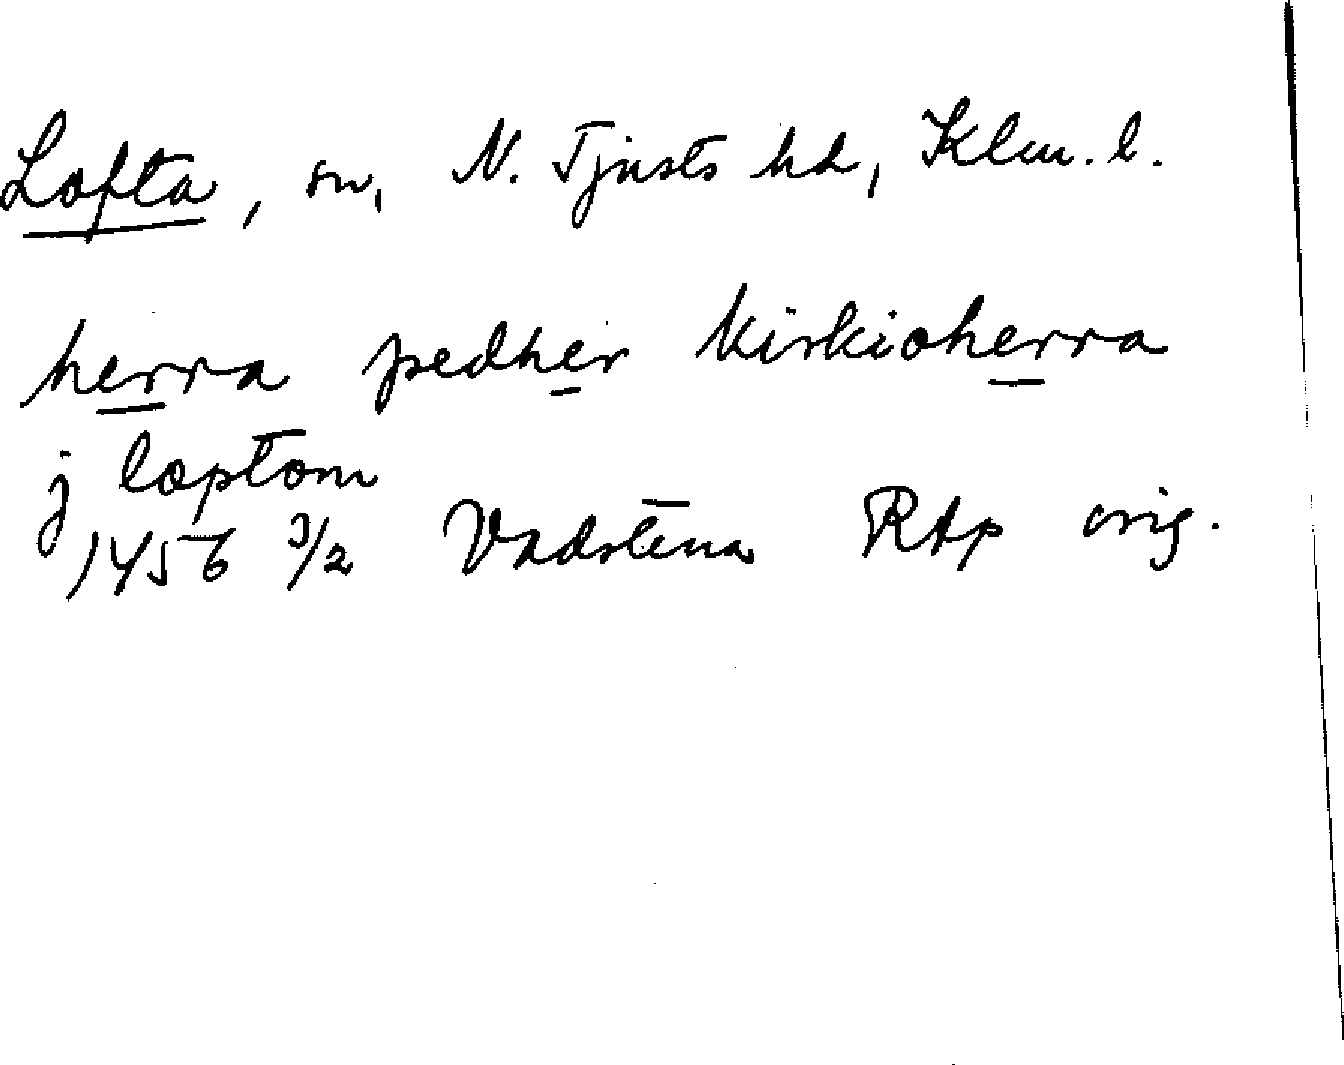 Lofta, sn, N. Tjusts hd, Klm. l.
herra pedher kirkioherra
j loptom
1456 3/2 Vadstena RAp orig.